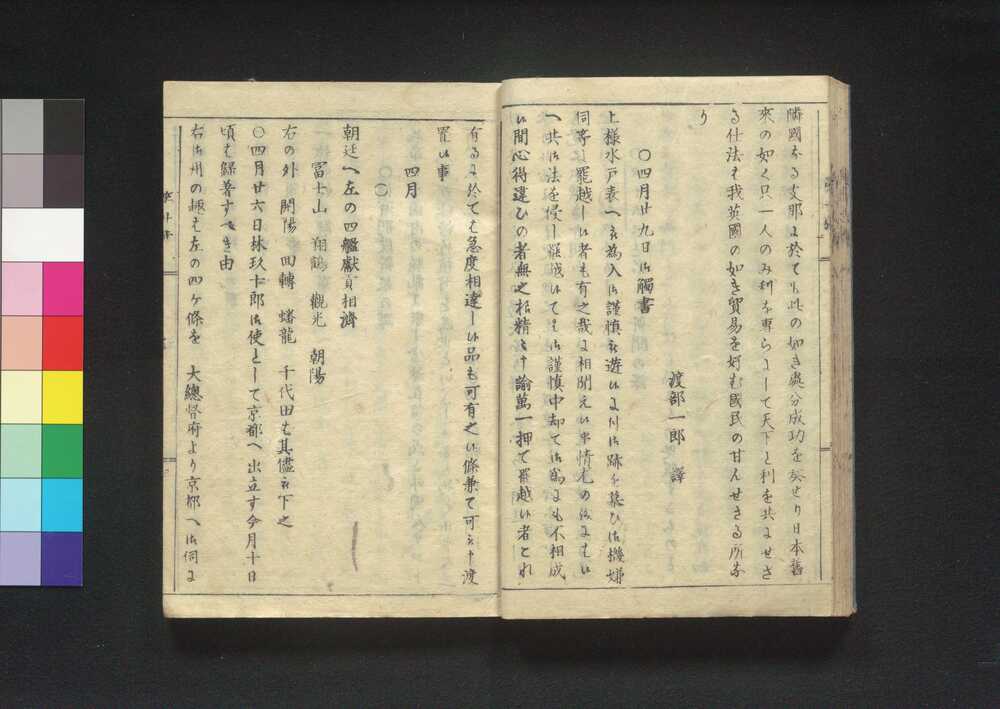 隣國なる支那に於ても此の如き處分成功を奏せり日本舊
來の如く只一人のみ利を專らにして天下と利を共にせさ
る仕法は我英國の如き貿易を好む國民の甘んせさる所な
り
渡部一郎 譯
〇四月廿九日御觸書
上樣水戸表へ被為入御謹慎被遊候に付御跡を慕ひ御機嫌
伺等に罷越し候者も有之哉に相聞え候事情尤の儀には候
へ共御法を侵し罷越候ては御謹慎中却て御為にも不相成
候間心得違ひの者無之樣精々可申諭萬一押て罷越候者とも
有るに於ては急度相達し候品も可有之候條兼て可被申渡
置候事
四月
〇
朝廷へ左の四艦獻貢相濟
冨士山 翔鶴 觀光 朝陽
右の外 開陽 回轉 蟠龍 千代田は其儘被下之
〇四月廿六日林玖十郎御使として京都へ出立す今月十日
頃は歸著すへき由
右御州の趣は左の四ケ條を 大總督府より京都へ御伺に